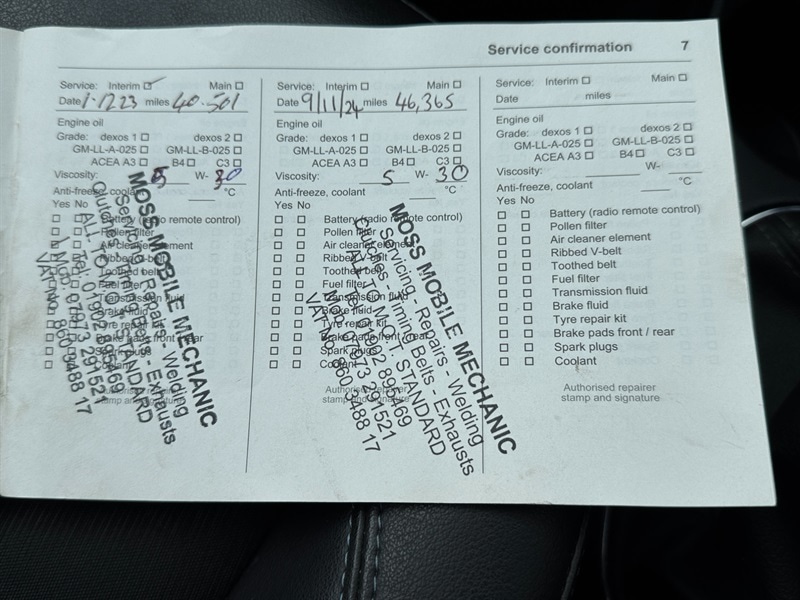 Service confirmation 7
Service: Interim ☑ Main ☐
Date 1.12.23 miles 40.501
Engine oil
Grade: dexos 1 ☐ dexos 2 ☐
GM-LL-A-025 ☐ GM-LL-B-025 ☐
ACEA A3 ☐ B4 ☐ C3 ☐
Viscosity: 5 W- 30
Anti-freeze, coolant °C
Yes No
Battery (radio remote control)
Pollen filter
Air cleaner element
Ribbed V-belt
Toothed belt
Fuel filter
Transmission fluid
Brake fluid
Tyre repair kit
Brake pads front / rear
Spark plugs
Coolant
Authorised repairer
stamp and signature
MOSS MOBILE MECHANIC
Servicing - Repairs - Welding
- Exhausts
STANDARD
Tel: 01992
291521
VAT No 860 9488 17
Service: Interim ☐ Main ☐
Date 9/11/24 miles 46,365
Engine oil
Grade: dexos 1 ☐ dexos 2 ☐
GM-LL-A-025 ☐ GM-LL-B-025 ☐
ACEA A3 ☐ B4 ☐ C3 ☐
Viscosity: 5 W- 30
Anti-freeze, coolant °C
Yes No
Battery (radio remote control)
Pollen filter
Air cleaner element
Ribbed V-belt
Toothed belt
Fuel filter
Transmission fluid
Brake fluid
Tyre repair kit
Brake pads front / rear
Spark plugs
Coolant
Authorised repairer
stamp and signature
MOSS MOBILE MECHANIC
Servicing - Repairs - Welding
Timing Belts - Exhausts
STANDARD
291521
VAT No 860 9488 17
Service: Interim ☐ Main ☐
Date miles
Engine oil
Grade: dexos 1 ☐ dexos 2 ☐
GM-LL-A-025 ☐ GM-LL-B-025 ☐
ACEA A3 ☐ B4 ☐ C3 ☐
Viscosity: W-
Anti-freeze, coolant °C
Yes No
Battery (radio remote control)
Pollen filter
Air cleaner element
Ribbed V-belt
Toothed belt
Fuel filter
Transmission fluid
Brake fluid
Tyre repair kit
Brake pads front / rear
Spark plugs
Coolant
Authorised repairer
stamp and signature